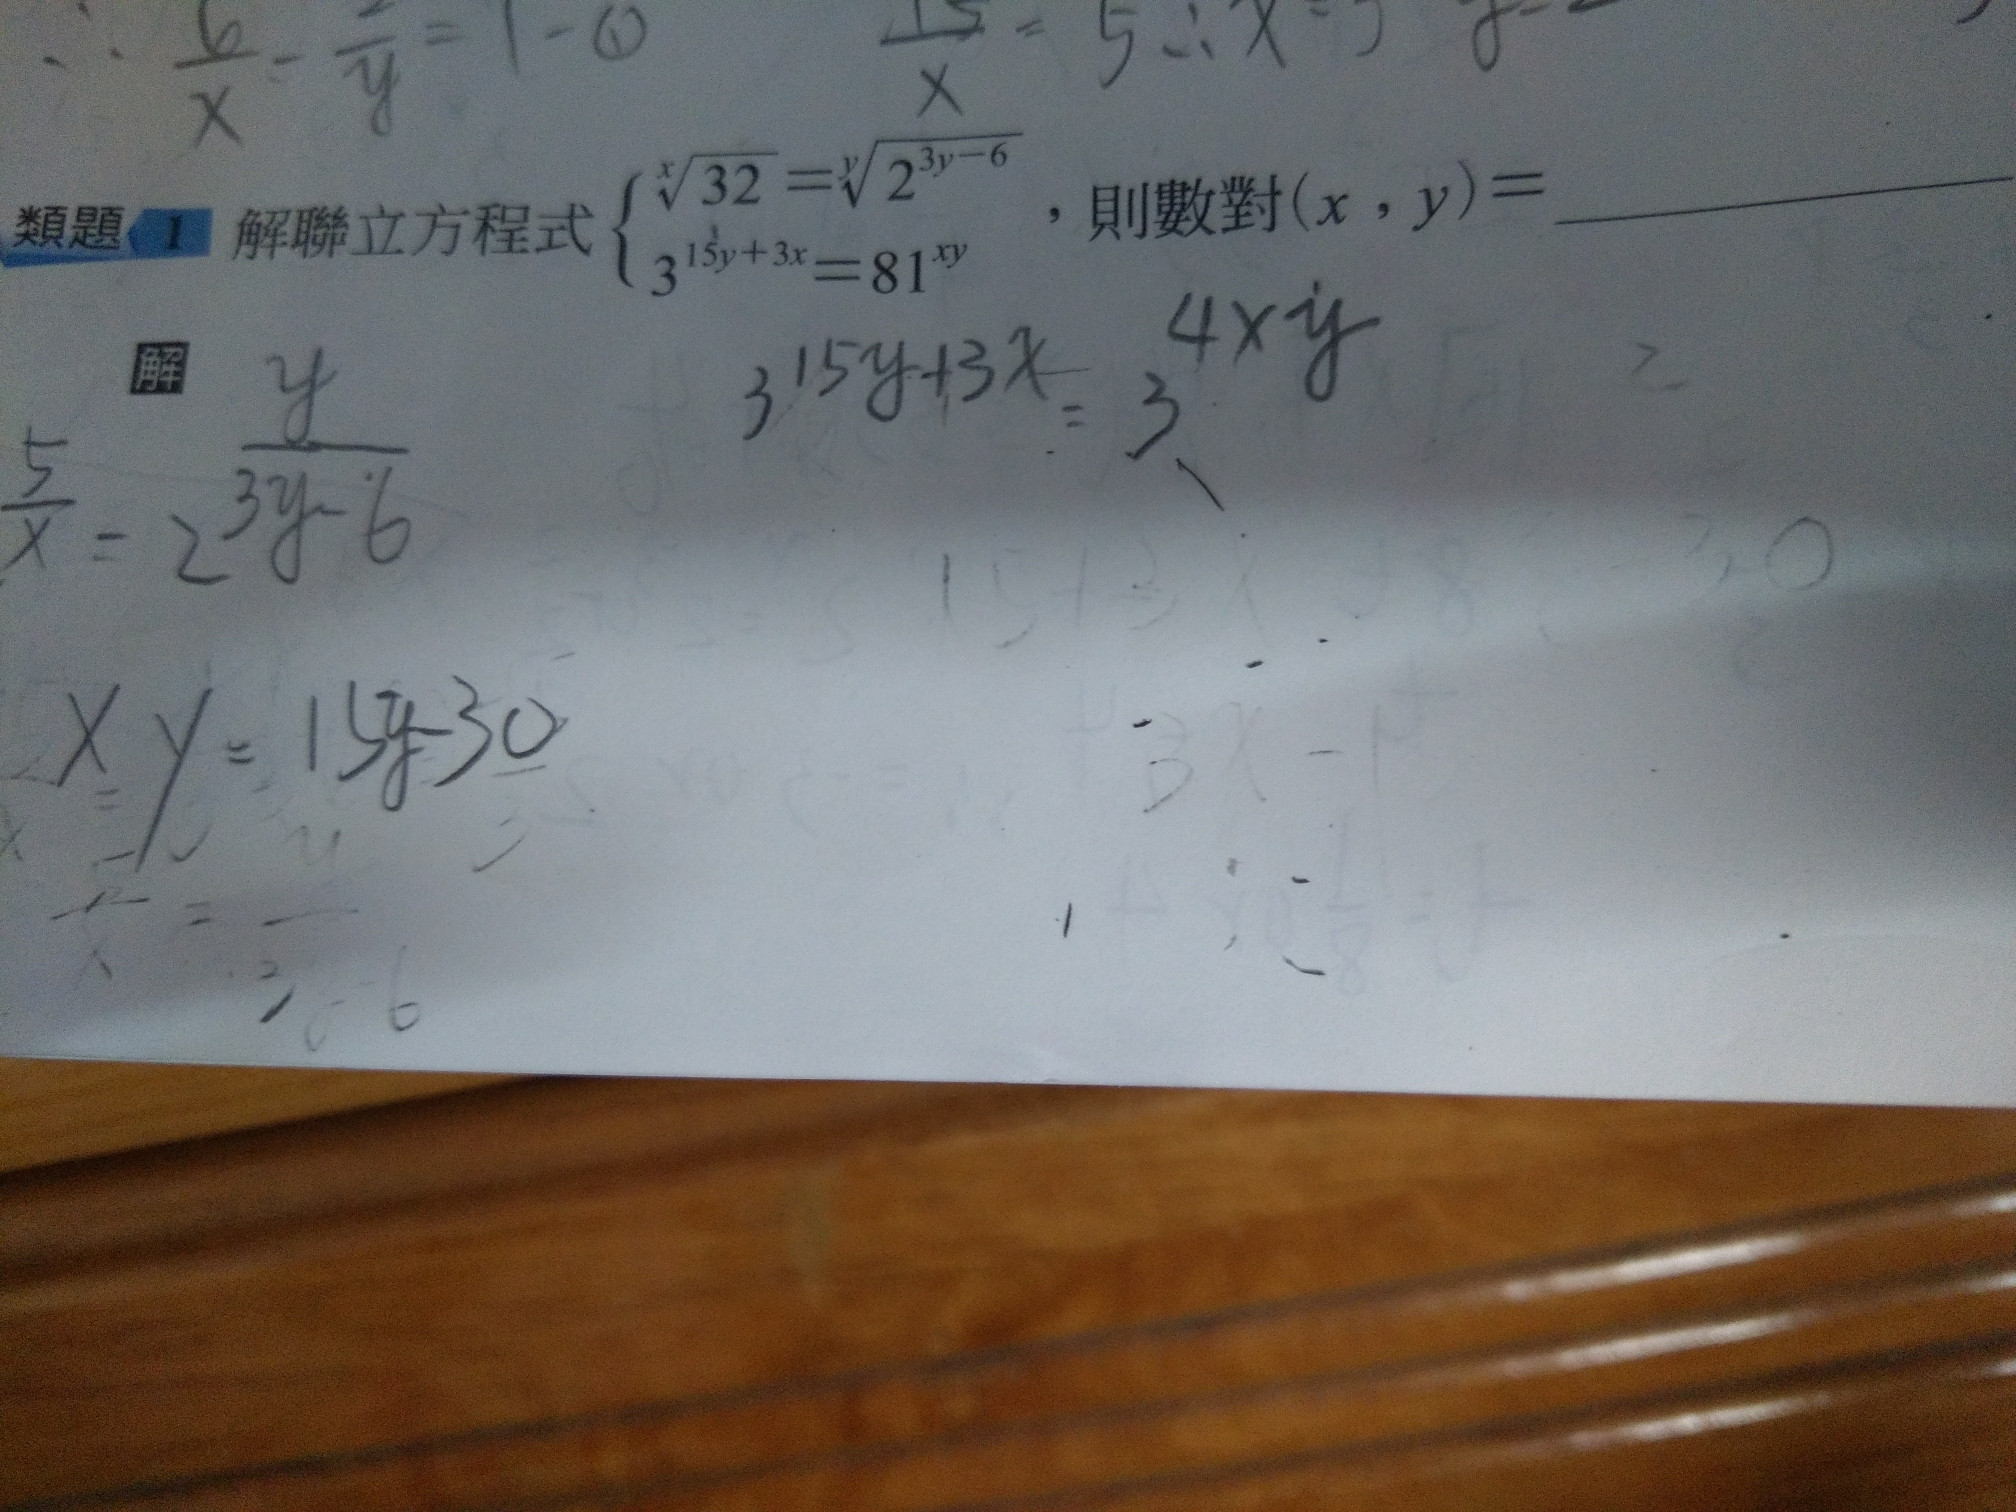 ∴ 6/x - 2/y = 1 - ①
15/x = 5 ∴ x = 3 y = 2
類題 1 解聯立方程式 { ˣ√32 = ʸ√2^(3y-6)
3^(15y+3x) = 81^(xy) ，則數對(x , y) =
解
y/(3y-6)
3^(15y+3x) = 3^(4xy)
5/x = 2^(y/(3y-6))
xy = 15y-30